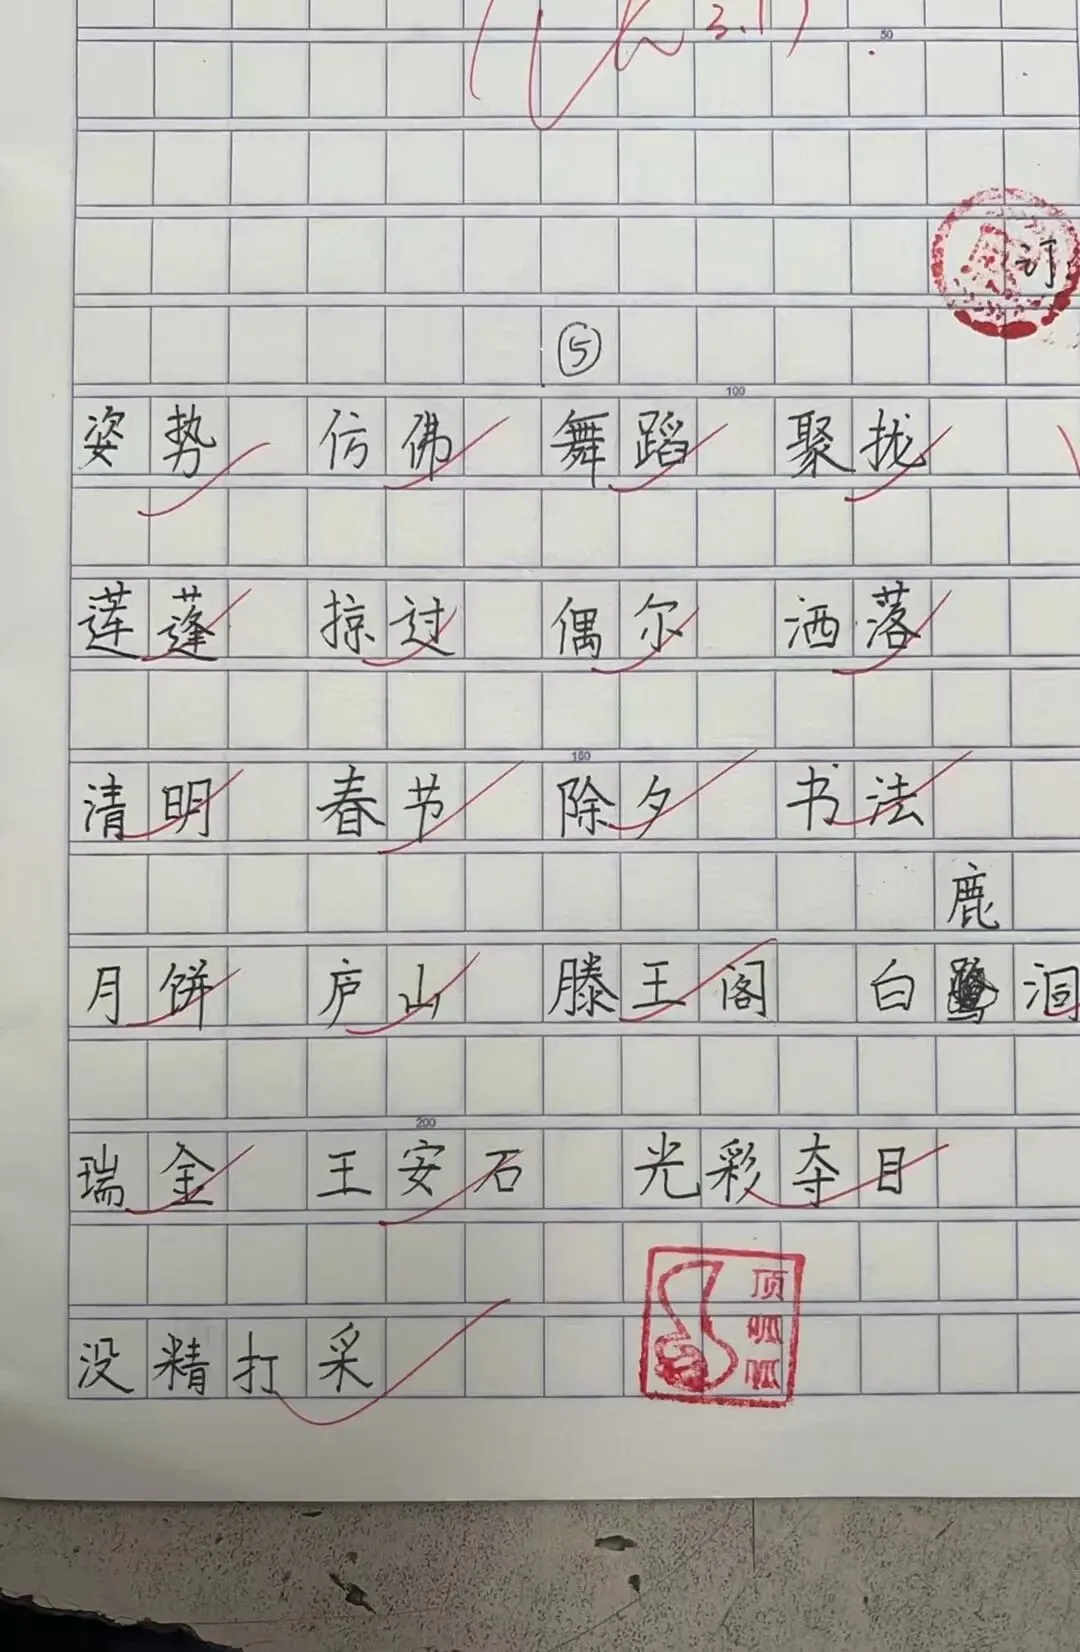 3.1
50
订
⑤
100
姿势 仿佛 舞蹈 聚拢
莲蓬 掠过 偶尔 洒落
150
清明 春节 除夕 书法
鹿
月饼 庐山 滕王阁 白 洞
200
瑞金 王安石 光彩夺目
顶呱呱
没精打采